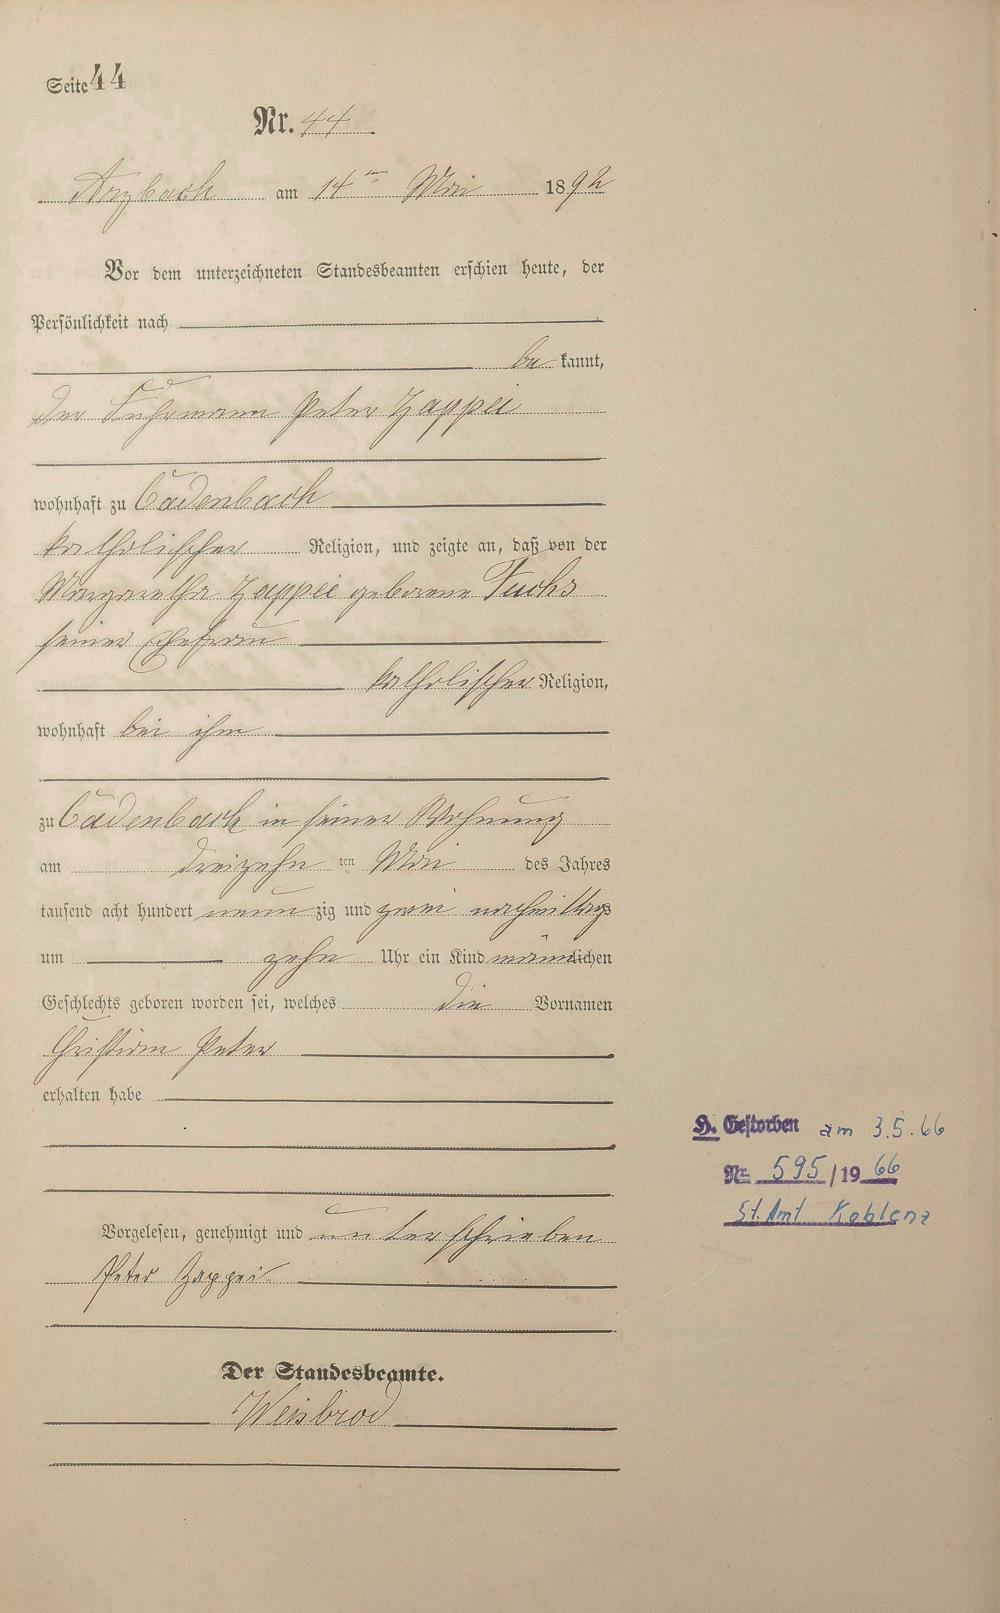 Seite 44
Nr. 44
Arzbach am 14ten Mai 1892
Vor dem unterzeichneten Standesbeamten erschien heute, der
Persönlichkeit nach
be kannt,
der Fuhrmann Peter Zappei
wohnhaft zu Cadenbach
katholischer Religion, und zeigte an, daß von der
Margaretha Zappei geborene Fuchs
seiner Ehefrau
katholischer Religion,
wohnhaft bei ihm
zu Cadenbach in seiner Wohnung
am dreizehn ten Mai des Jahres
tausend acht hundert neun zig und zwei nachmittags
um zehn Uhr ein Kind männlichen
Geschlechts geboren worden sei, welches die Vornamen
Christian Peter
erhalten habe
H. Gestorben am 3.5.66
Nr. 595/1966
St. Amt Koblenz
Vorgelesen, genehmigt und unterschrieben
Peter Zappei
Der Standesbeamte.
Weisbrod